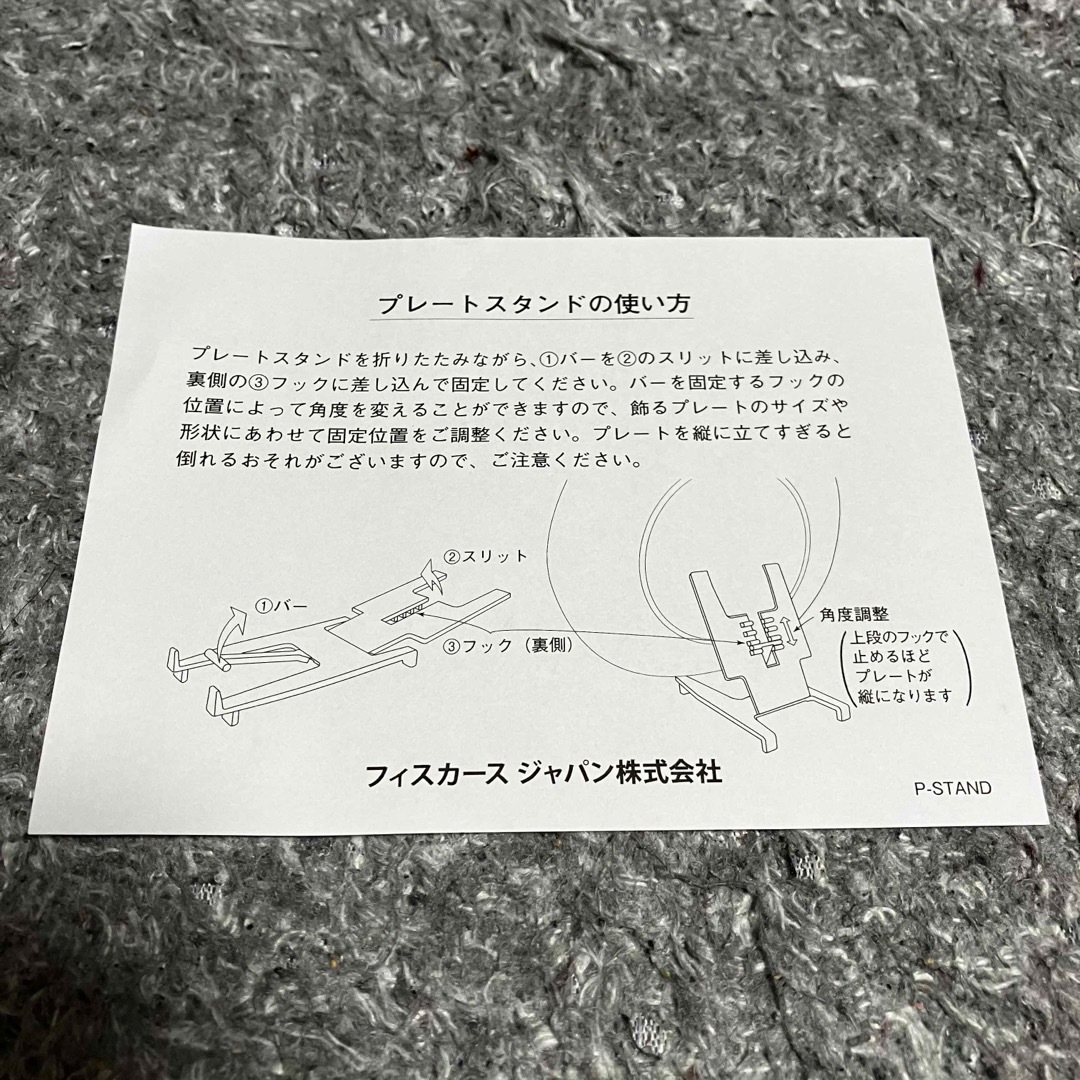 プレートスタンドの使い方
プレートスタンドを折りたたみながら、①バーを②のスリットに差し込み、
裏側の③フックに差し込んで固定してください。バーを固定するフックの
位置によって角度を変えることができますので、飾るプレートのサイズや
形状にあわせて固定位置をご調整ください。プレートを縦に立てすぎると
倒れるおそれがございますので、ご注意ください。
②スリット
①バー
③フック（裏側）
角度調整
（上段のフックで
止めるほど
プレートが
縦になります）
フィスカース ジャパン株式会社
P-STAND